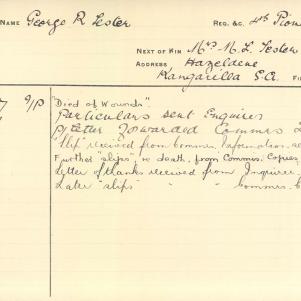 NAME George R Lester REG. &C. 4th Pion
NEXT OF KIN Mrs M. L. Lester
ADDRESS Hazeldene
Kangarilla S.A. FI
7 9/P "Died of Wounds".
Particulars sent Enquirer
Letter Forwarded Commrs
"Slip" received from Commrs. Information
Further "slips" re death, from Commis. Copies
Letter of thanks received from Inquirer
Later "slips" " " Commrs.